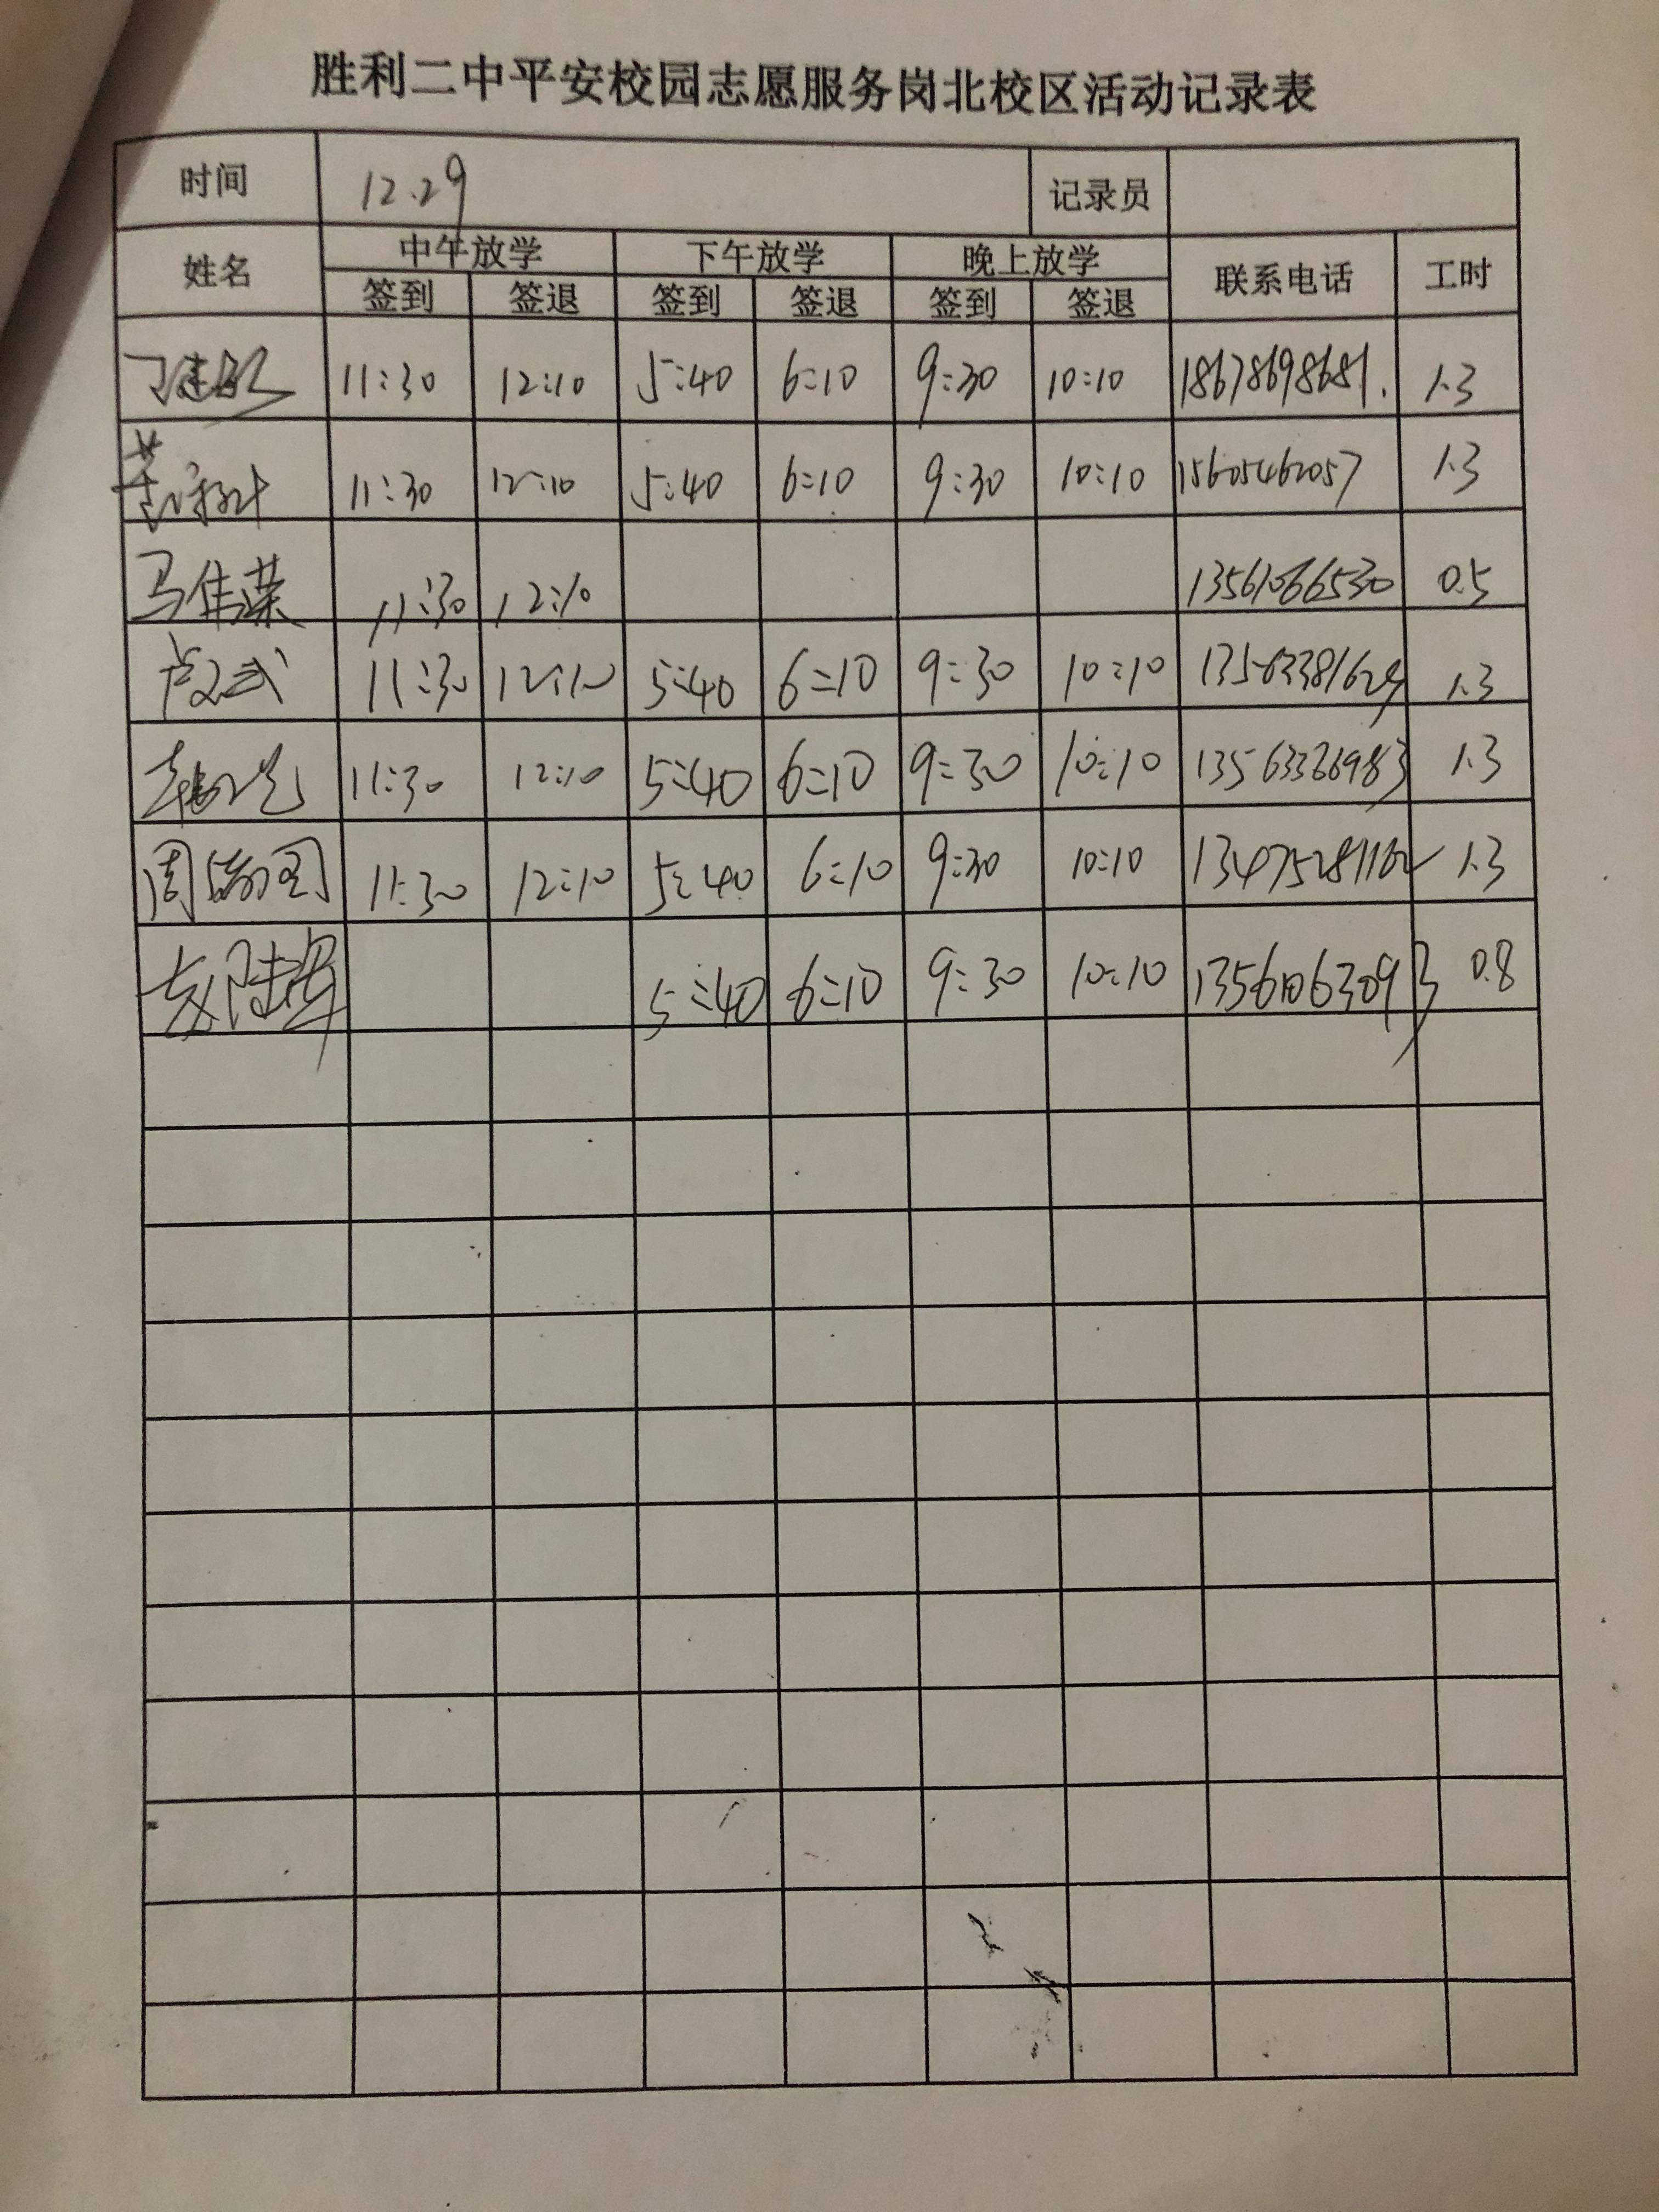 胜利二中平安校园志愿服务岗北校区活动记录表
时间 12.29 记录员
姓名 中午放学 下午放学 晚上放学 联系电话 工时
签到 签退 签到 签退 签到 签退
11:30 12:10 5:40 6:10 9:30 10:10 18678698681. 1.3
11:30 12:10 5:40 6:10 9:30 10:10 15605462057 1.3
马伟荣 11:30 12:10 13561066530 0.5
卢文武 11:30 12:10 5:40 6:10 9:30 10:10 13563381629 1.3
11:30 12:10 5:40 6:10 9:30 10:10 1.3
周 11:30 12:10 5:40 6:10 9:30 10:10 1.3
5:40 6:10 9:30 10:10 13561063093 0.8